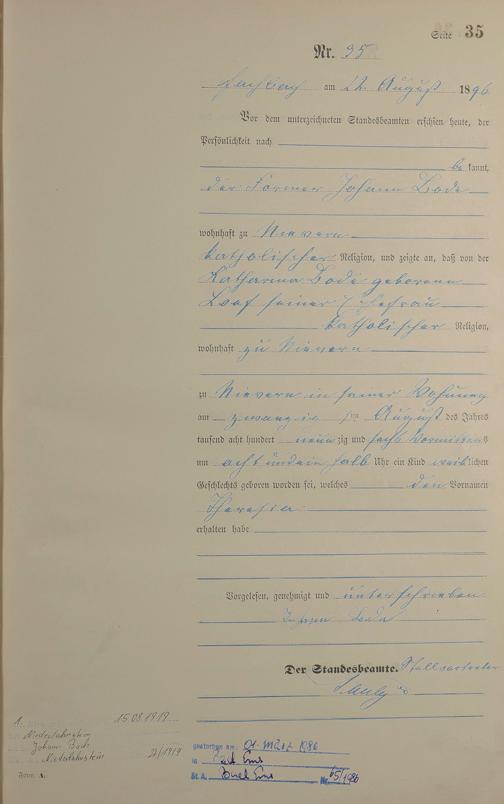 Seite 35
Nr. 95
Fachbach am 22. August 1896
Vor dem unterzeichneten Standesbeamten erschien heute, der
Persönlichkeit nach
be kannt,
der Former Johann Bode
wohnhaft zu Nievern
katholischer Religion, und zeigte an, daß von der
Katharina Bode geborene
seiner Ehefrau
katholischer Religion,
wohnhaft zu Nievern
zu Nievern in seiner Wohnung
am zwanzig ten August des Jahres
tausend acht hundert neun zig und sechs Vormittags
um acht und ein halb Uhr ein Kind weiblichen
Geschlechts geboren worden sei, welches den Vornamen
Theresia
erhalten habe
Vorgelesen, genehmigt und unterschrieben
Johann Bode
Der Standesbeamte. Stellvertreter
1. 15.08.1919
Niederlahnstein
Johann
Niederlahnstein 22/1919
Form A.
gestorben am 01. März 1986
in Bad Ems
St. A. Bad Ems Nr. 65/1986